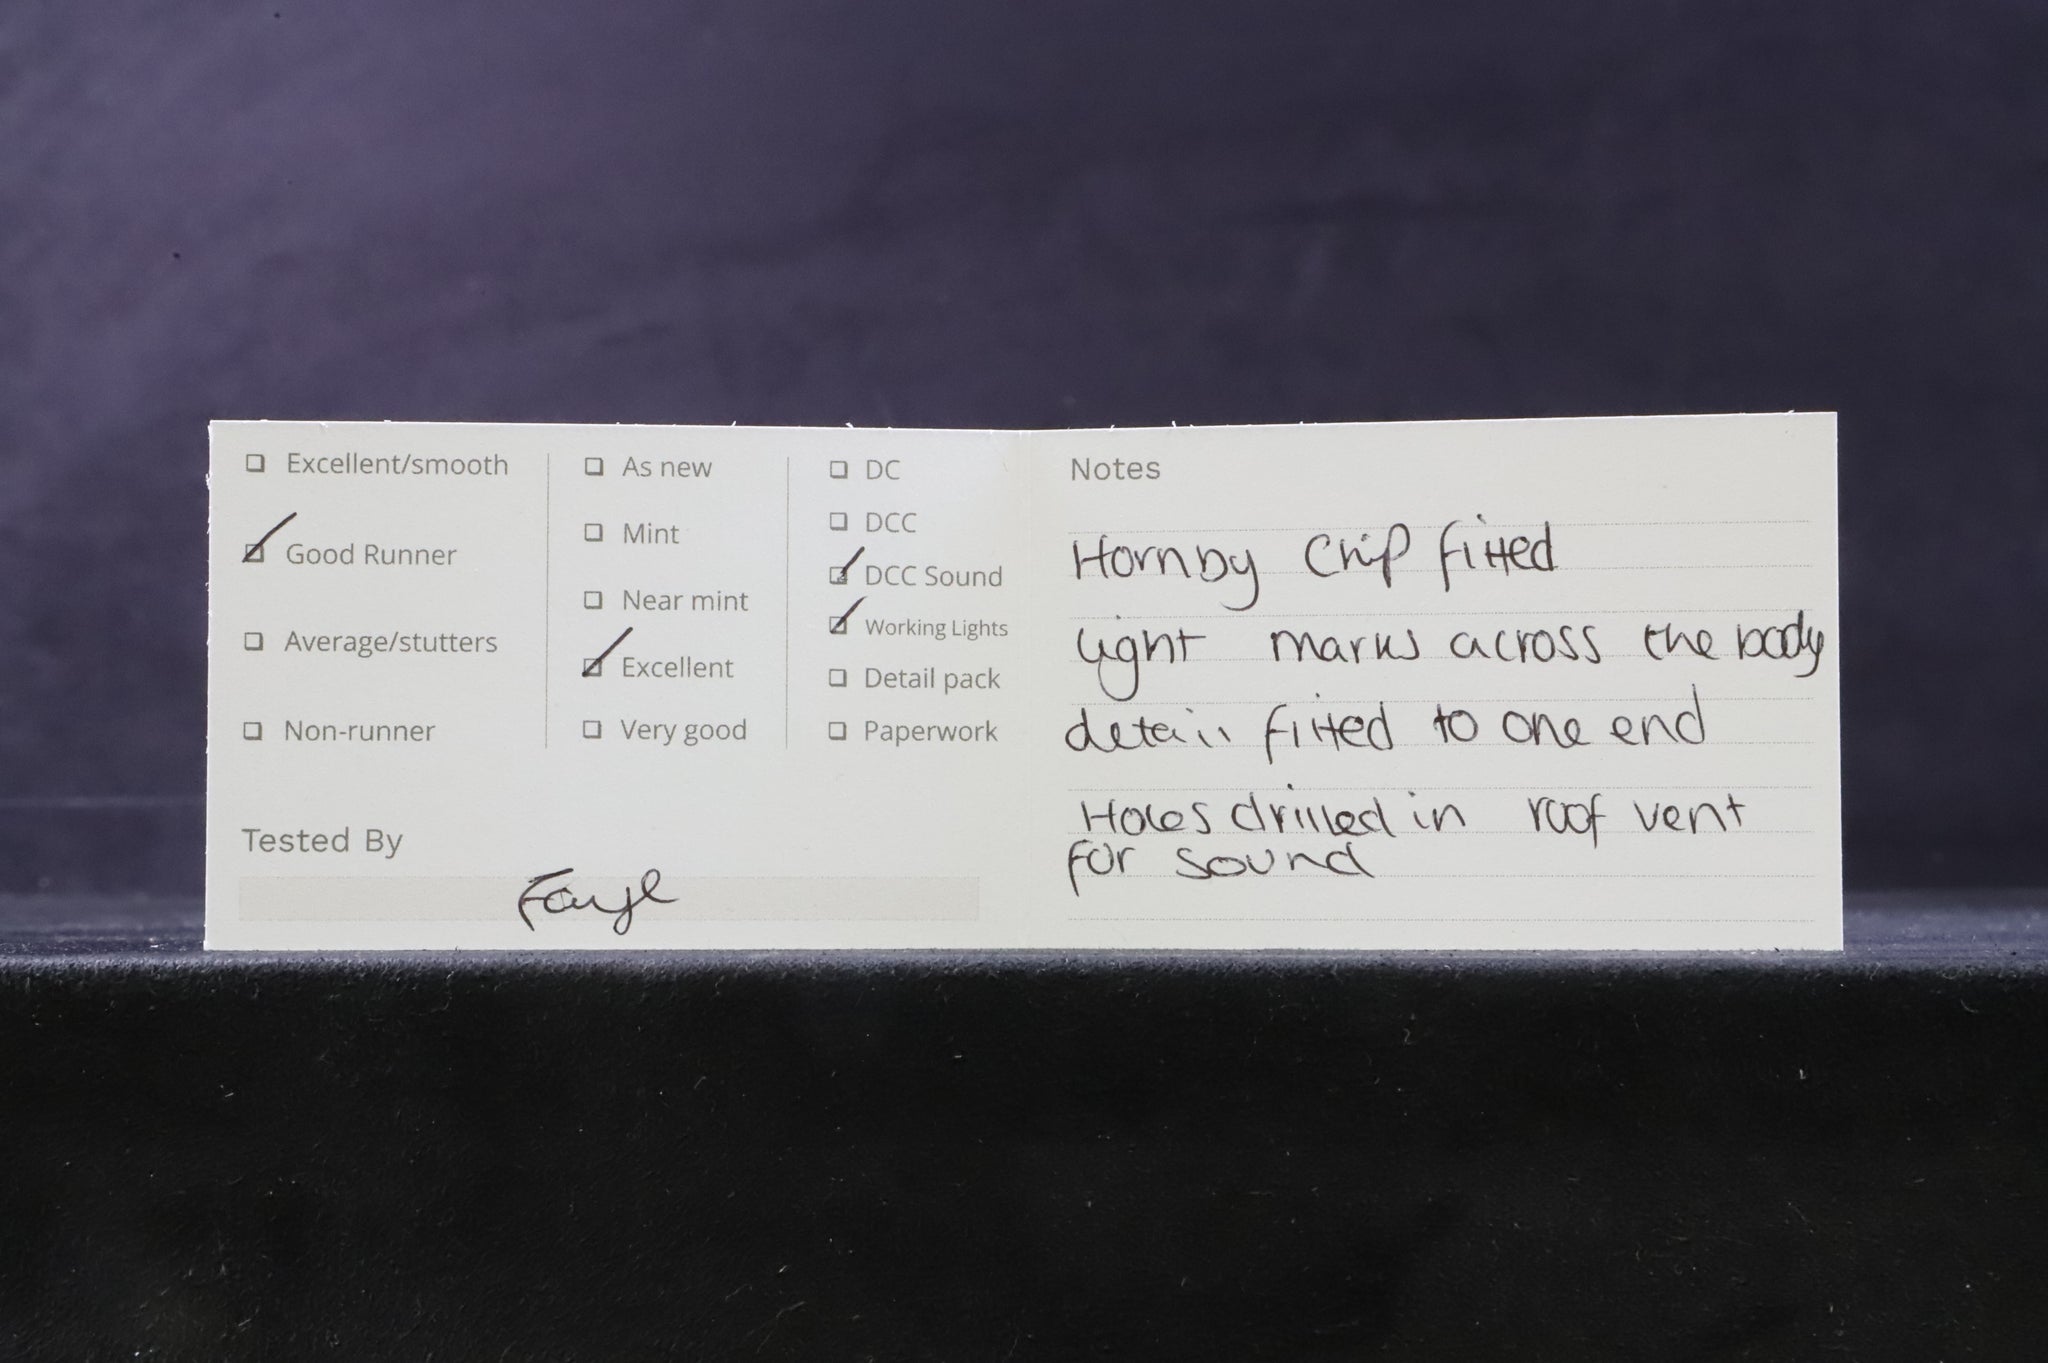 Excellent/smooth
Good Runner
Average/stutters
Non-runner
As new
Mint
Near mint
Excellent
Very good
DC
DCC
DCC Sound
Working Lights
Detail pack
Paperwork
Tested By
Faye
Notes
Hornby Chip fitted
light marks across the body
detail fitted to one end
Holes drilled in roof vent
for sound